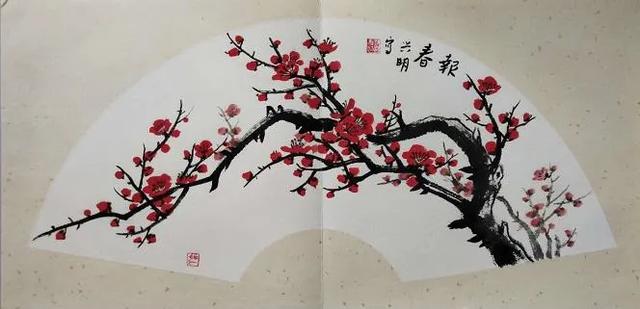 報春
兴明
写